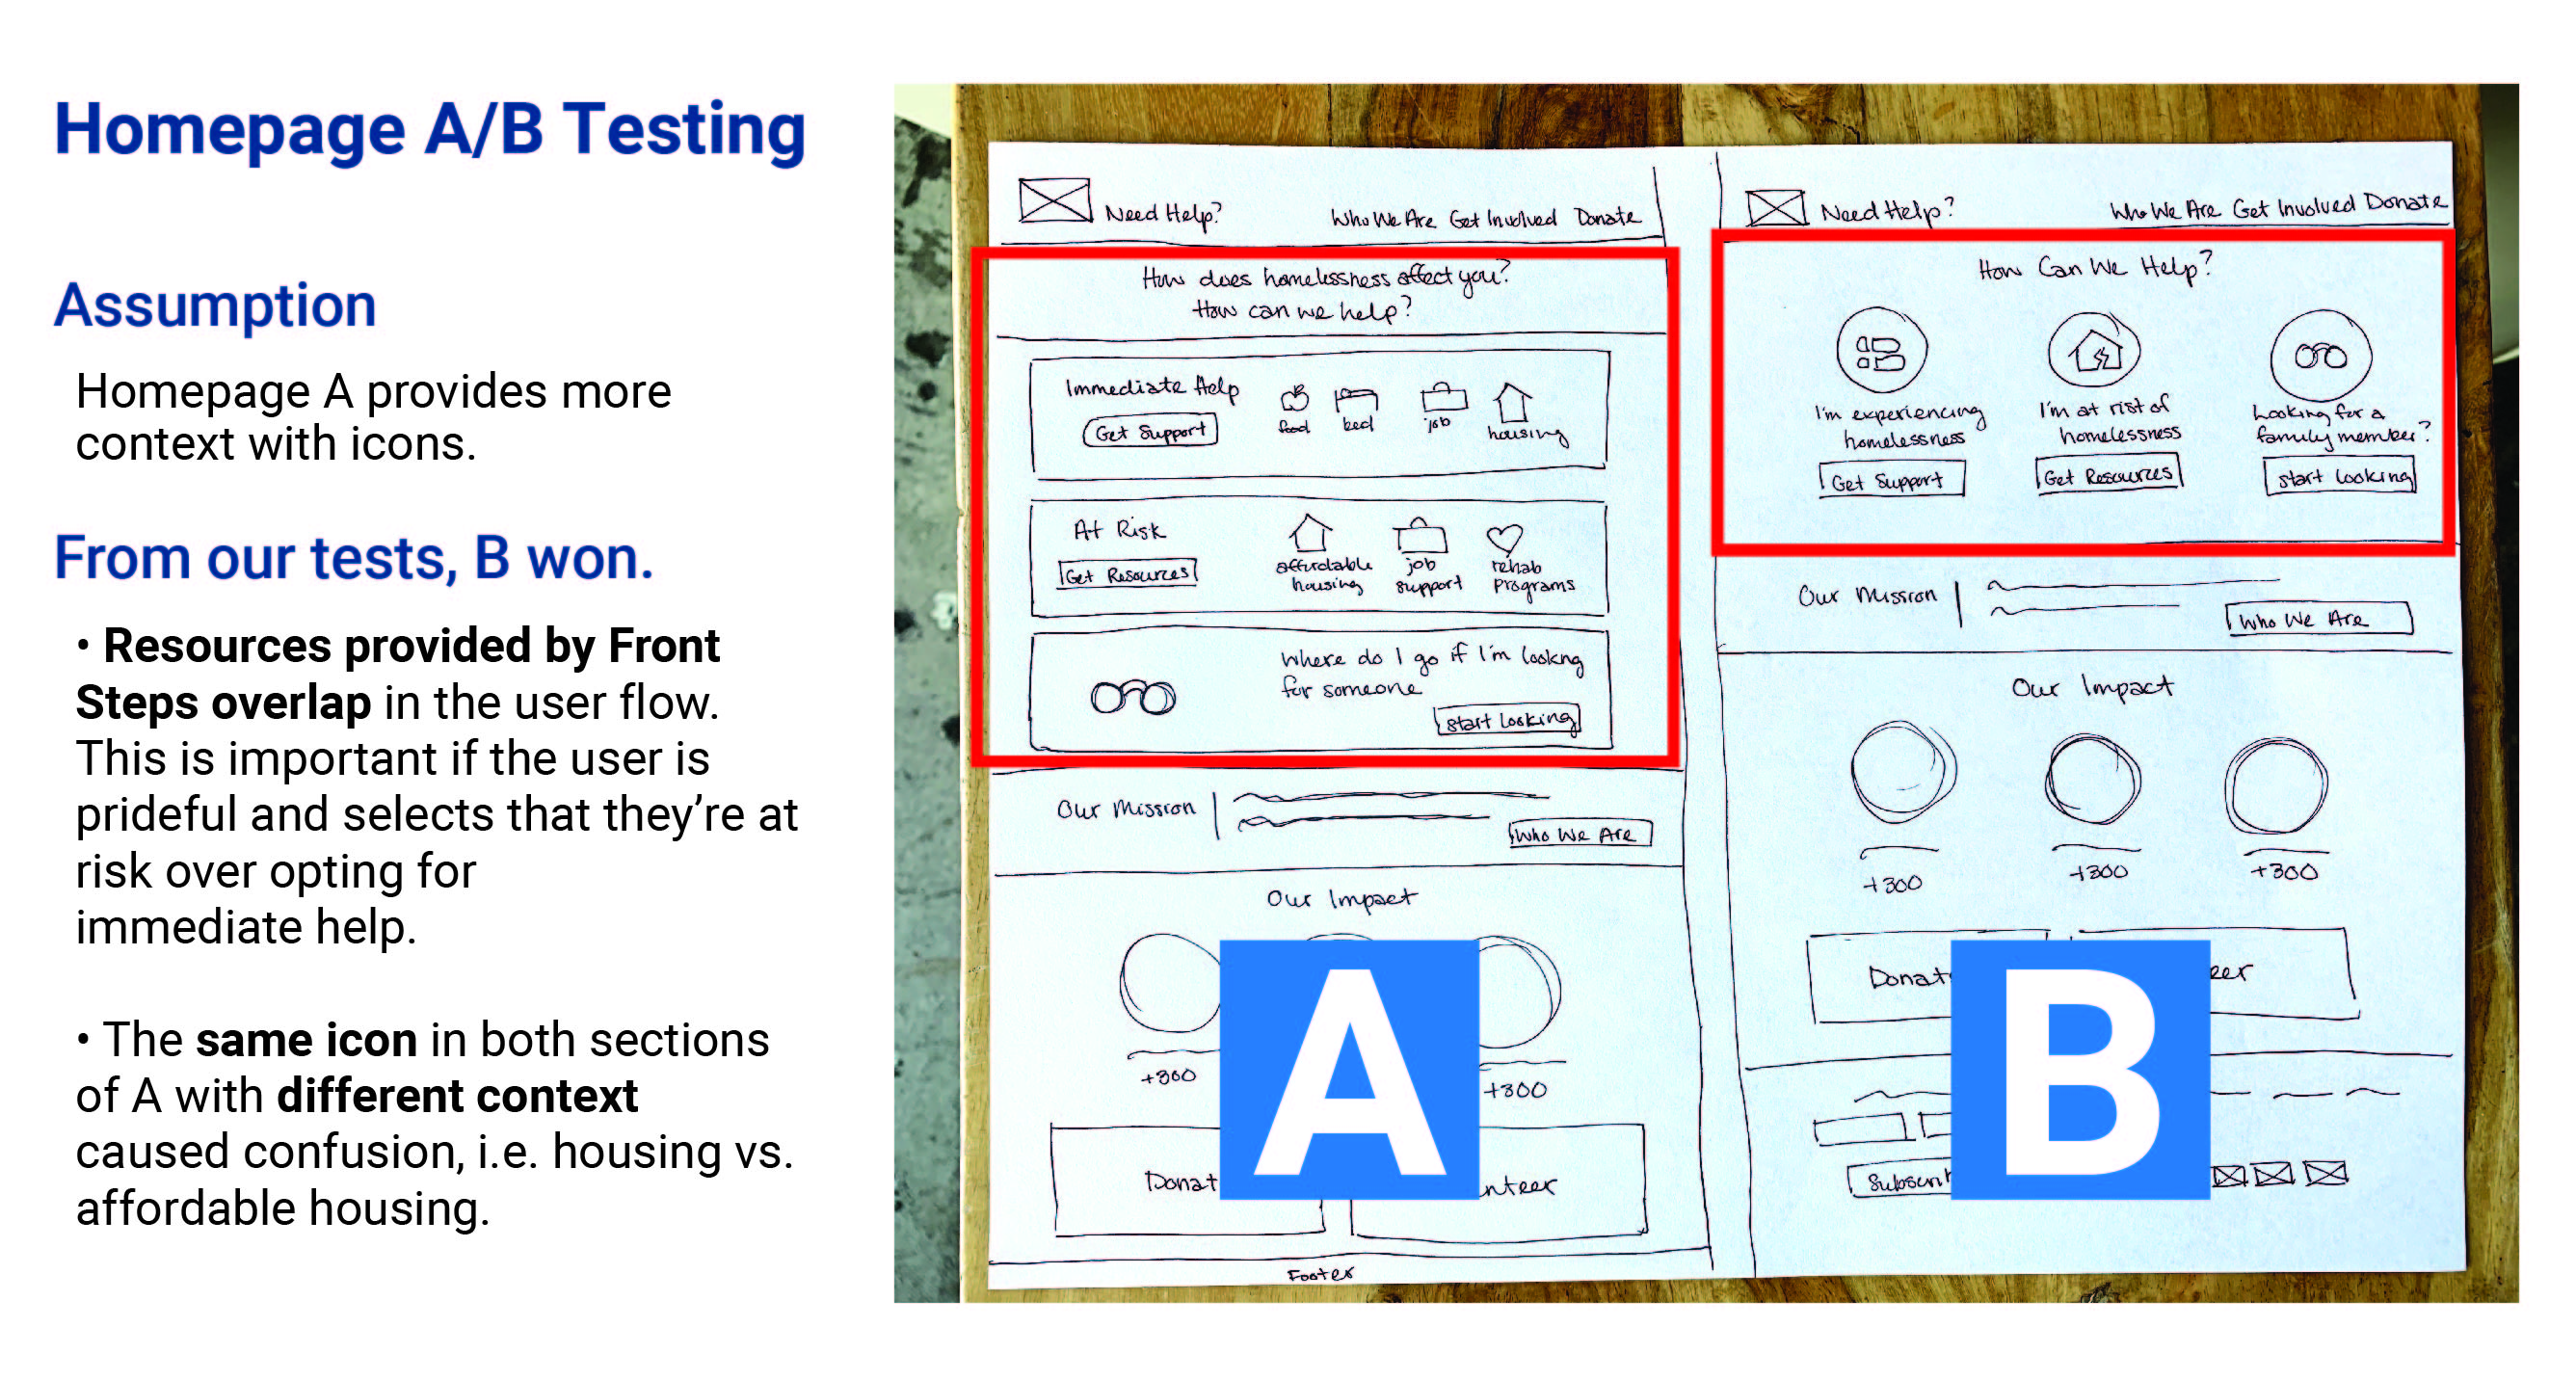 Homepage A/B Testing
Assumption
Homepage A provides more
context with icons.
From our tests, B won.
• Resources provided by Front
Steps overlap in the user flow.
This is important if the user is
prideful and selects that they’re at
risk over opting for
immediate help.
• The same icon in both sections
of A with different context
caused confusion, i.e. housing vs.
affordable housing.
Need Help? Who We Are Get Involved Donate
How does homelessness affect you?
How can we help?
Immediate Help
Get Support
food bed job housing
At Risk
Get Resources
affordable
housing
job
support
rehab
programs
Where do I go if I'm lookng
for someone
start looking
Our Mission
Who We Are
Our Impact
+300 +300
Donat nteer
Footer
A
Need Help? Who We Are Get Involved Donate
How Can We Help?
I'm experiencing
homelessness
Get Support
I'm at risk of
homelessness
Get Resources
Looking for a
family member?
start looking
Our Mission
Who We Are
Our Impact
+300 +300 +300
Donat eer
Subscri
B